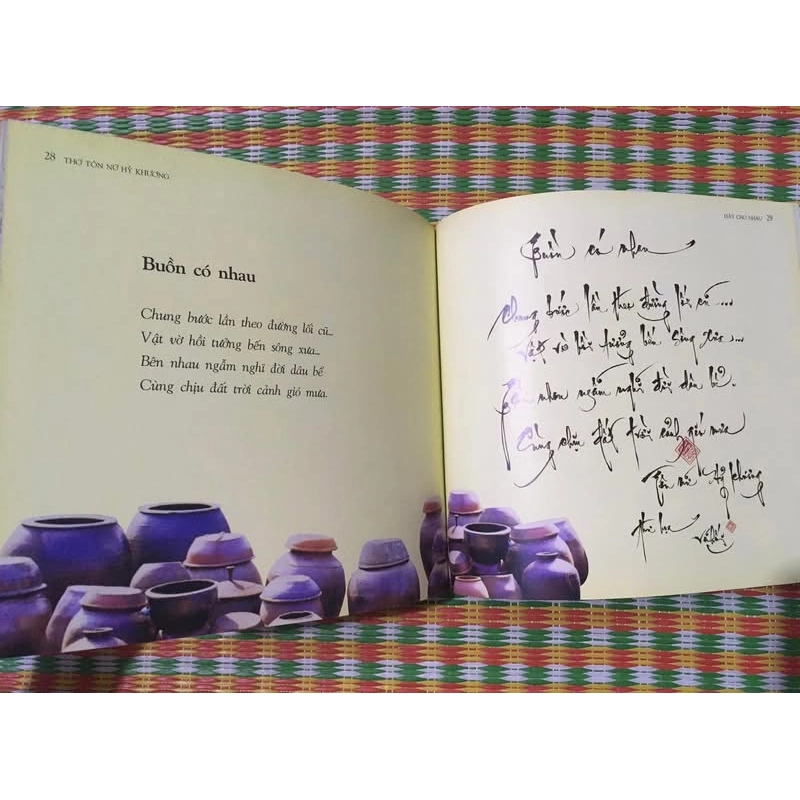 28 THƠ TÔN NỮ HỶ KHƯƠNG
Buồn có nhau
Chung bước lần theo đường lối cũ...
Vật vờ hồi tưởng bến sông xưa...
Bên nhau ngẫm nghĩ đời dâu bể
Cùng chịu đất trời cảnh gió mưa.
HÃY CHO NHAU 29
Buồn có nhau
Chung bước lần theo đường lối cũ...
Vật vờ hồi tưởng bến sông xưa...
Bên nhau ngẫm nghĩ đời dâu bể.
Cùng chịu đất trời cảnh gió mưa
Tôn nữ Hỷ Khương